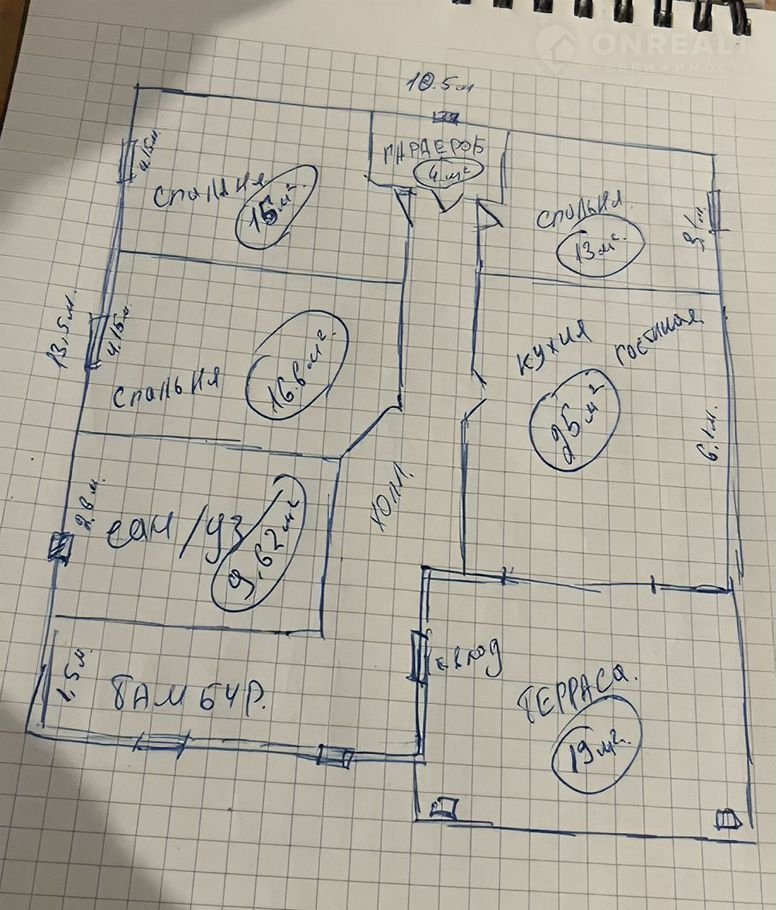 ONREALT
НЕДВИЖИМОСТЬ
10.5 м
ГАРДЕРОБ
4 м²
4.15 м.
спальня
16 м²
спальня.
13 м².
3.1 м.
13,5 м.
4.15 м.
спальня
16.6 м²
кухня
гостиная
25 м²
6.1 м.
2.8 м.
сан/уз
9,62 м²
холл.
1,5 м.
ТАМБУР.
вход
ТЕРРАСА.
19 м².